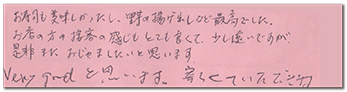 お寿司も美味しかったし、野菜の揚げ出しなど最高でした。
お店の方の接客の感じもとても良くて、少し遠いですが、
是非また おじゃましたいと思います。
Very good と思います。 寄らせていただきます